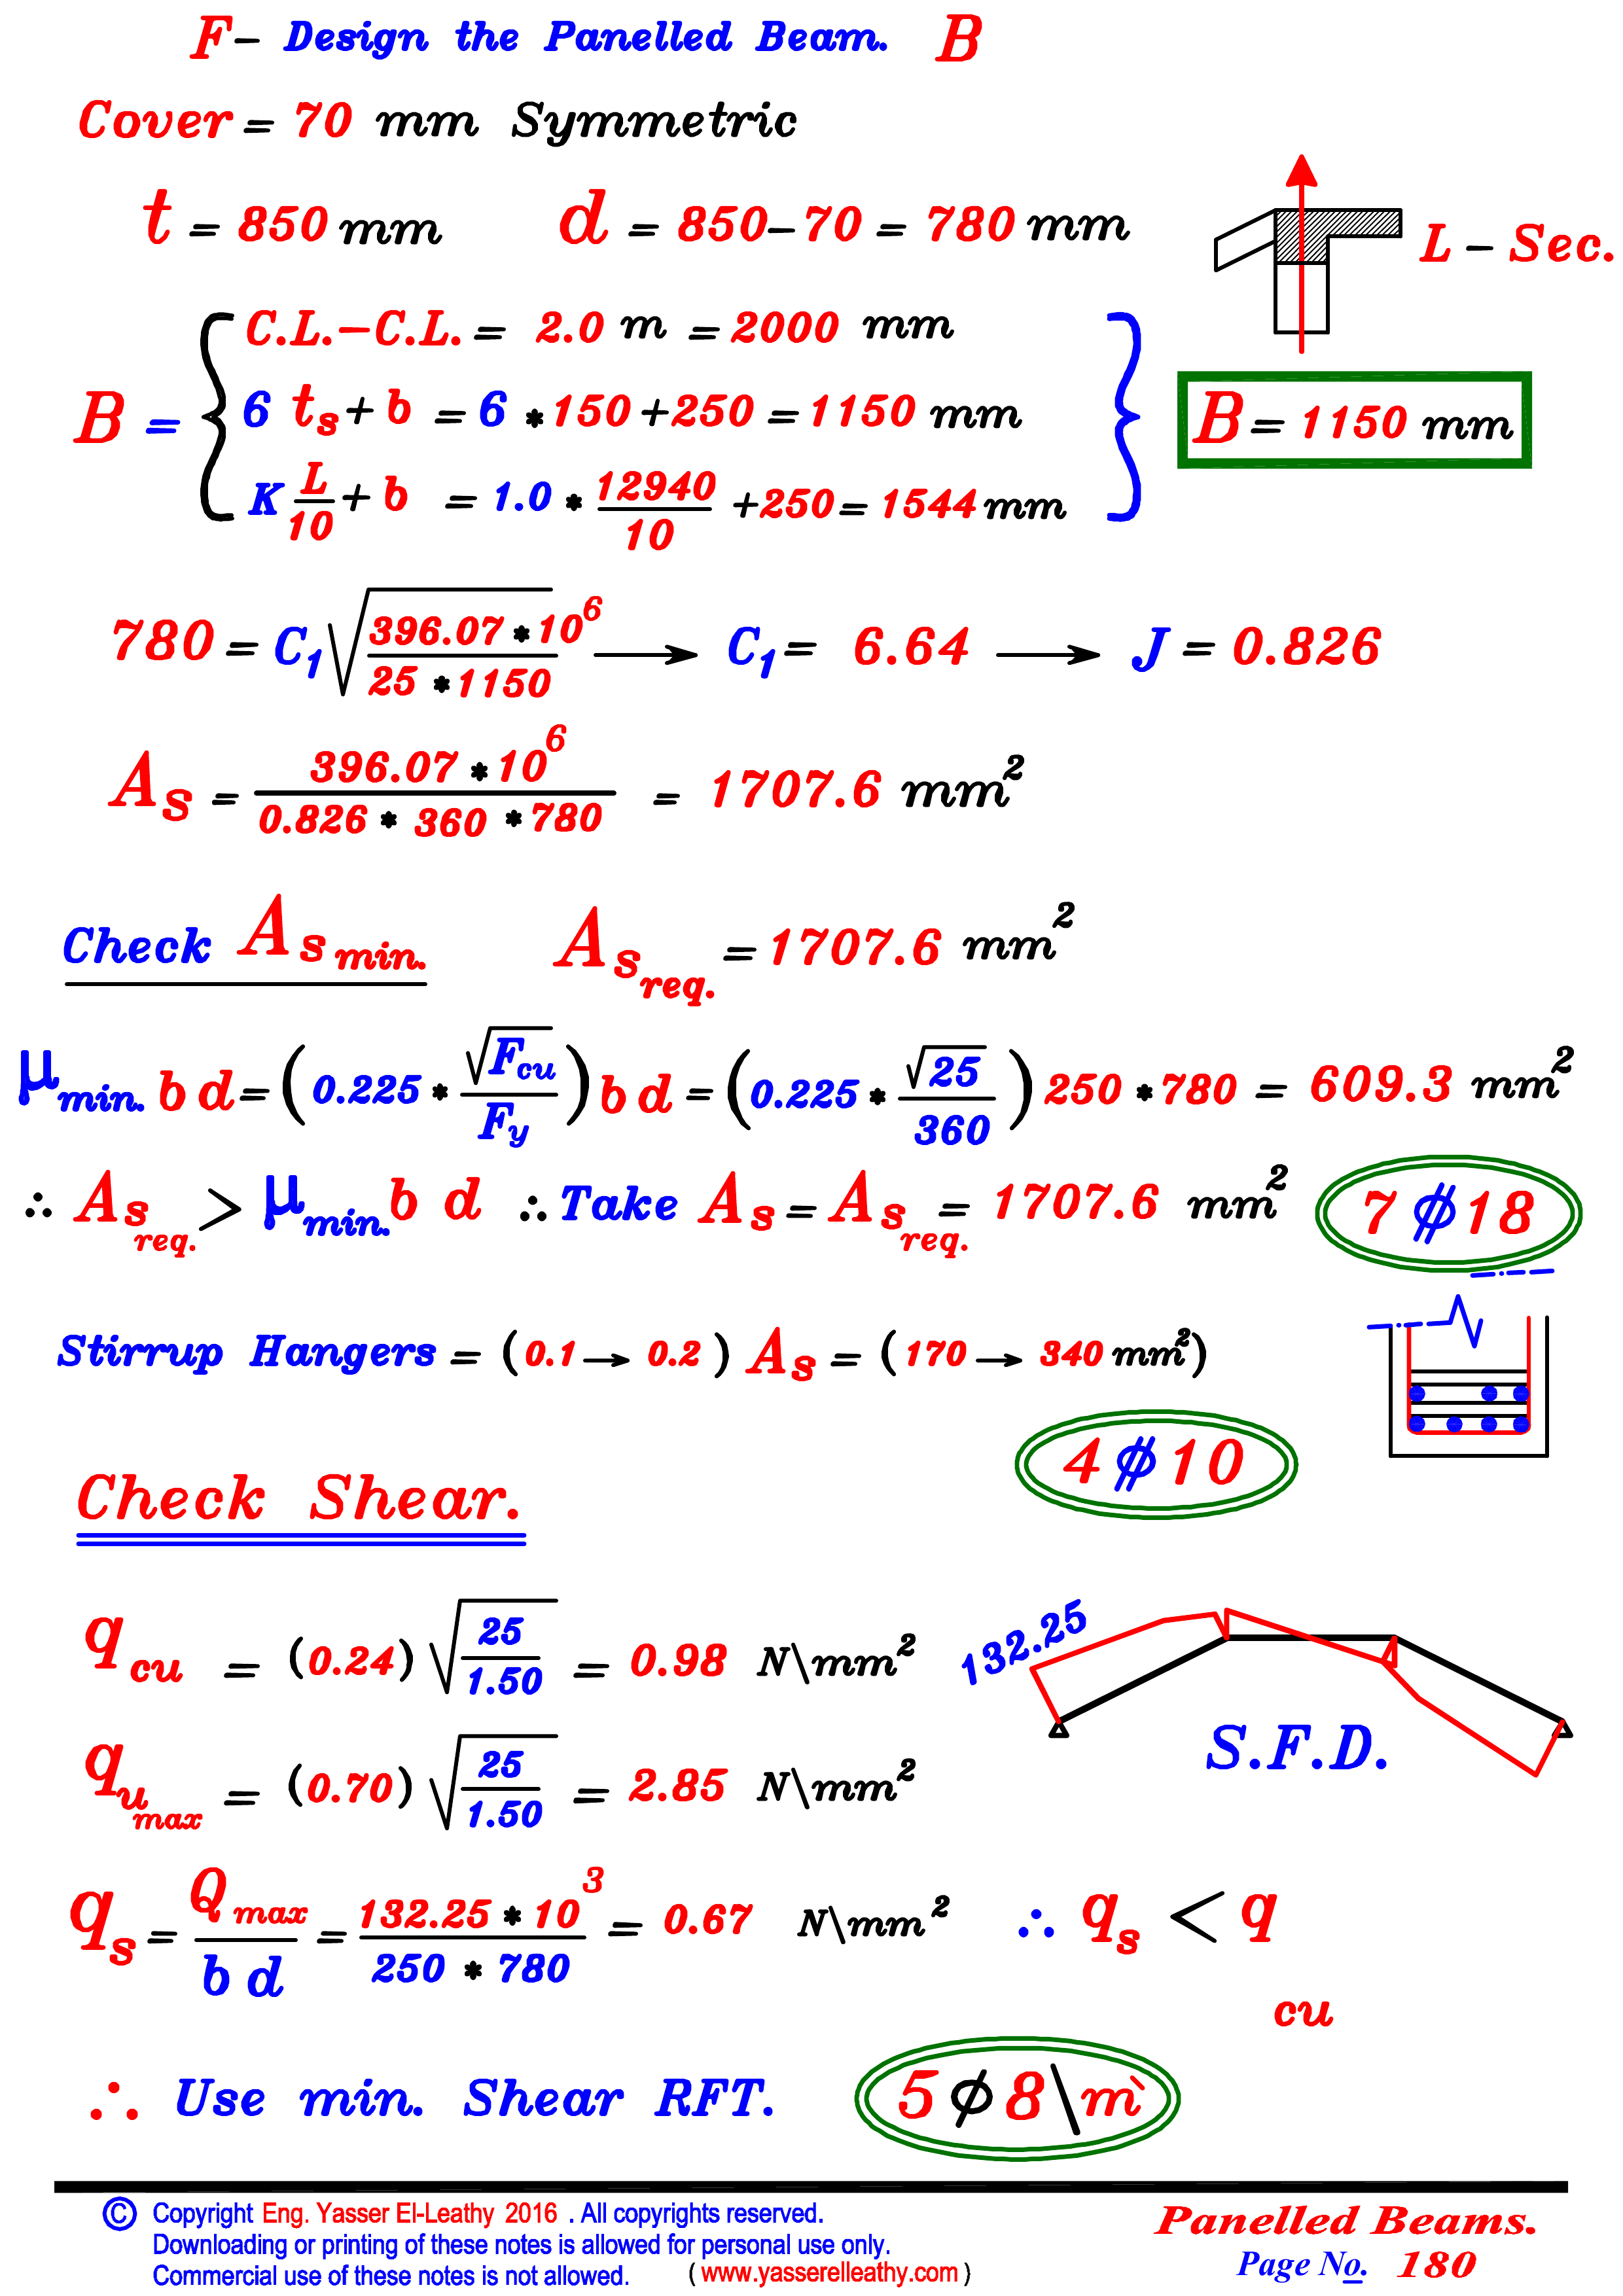 F- Design the Panelled Beam. B
Cover = 70 mm Symmetric
t = 850 mm d = 850-70 = 780 mm
L - Sec.
C.L.-C.L. = 2.0 m = 2000 mm
B = { 6 ts + b = 6 * 150 + 250 = 1150 mm } B = 1150 mm
K L/10 + b = 1.0 * 12940/10 + 250 = 1544 mm
780 = C1 √(396.07 * 10^6 / 25 * 1150) → C1 = 6.64 → J = 0.826
As = 396.07 * 10^6 / 0.826 * 360 * 780 = 1707.6 mm²
Check As min. As req. = 1707.6 mm²
μ min. b d = (0.225 * √Fcu / Fy) b d = (0.225 * √25 / 360) 250 * 780 = 609.3 mm²
∴ As req. > μ min. b d ∴ Take As = As req. = 1707.6 mm² 7 ⌀ 18
Stirrup Hangers = (0.1 → 0.2) As = (170 → 340 mm²)
4 ⌀ 10
Check Shear.
q cu = (0.24) √(25 / 1.50) = 0.98 N\mm²
132.25
S.F.D.
q u max = (0.70) √(25 / 1.50) = 2.85 N\mm²
qs = Q max / b d = 132.25 * 10^3 / 250 * 780 = 0.67 N\mm² ∴ qs < q cu
∴ Use min. Shear RFT. 5 ϕ 8 \ m`
© Copyright Eng. Yasser El-Leathy 2016 . All copyrights reserved.
Downloading or printing of these notes is allowed for personal use only.
Commercial use of these notes is not allowed. ( www.yasserelleathy.com )
Panelled Beams.
Page No. 180